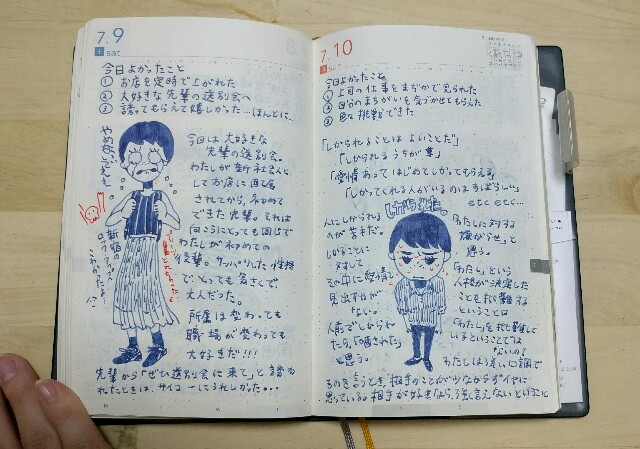 7.9
sat
今日よかったこと
① お店を定時で上がれた
② 大好きな先輩の送別会へ
③ 誘ってもらえて嬉しかった…ほんとに…
今日は大好きな
先輩の送別会。
わたしが新社会人と
してお店に配属
されてから、初めて
できた先輩。それは
向こうにとっても同じで
わたしが初めての
後輩。サッパリした性格
で、とっても気さくで
大人だった。
所属は変わっても
職場が変わっても
大好きだ!!!
先輩から「ぜひ送別会に来て」と誘わ
れたときは、サイコーにうれしかった…
7.10
今日よかったこと
① 上司の仕事をまぢかで見られた
② 自分のまちがいを気づかせてもらえた
③ 色々挑戦できた
「しかられることはよいことだ」
「しかられるうちが華」
「愛情あってはじめてしかってもらえる」
「しかってくれる人がいるのはすばらしい」
etc etc…
しかられた。
人にしかられる
のが苦手だ。
しかることに
対して
その中に愛情を
見出すせない
ない。
人前でしかられ
たら、「晒された」
と思う。
「わたしに対する
嫌がらせ」と
思う。
「わたし」という
人格が決定した
ことを非難する
ということは
「わたしを非難して
いるということでは
ないの?
わたしは、強い口調で
ものを言うとき、相手のことが少なからずイヤに
思っている。相手が好きなら、強く言えない